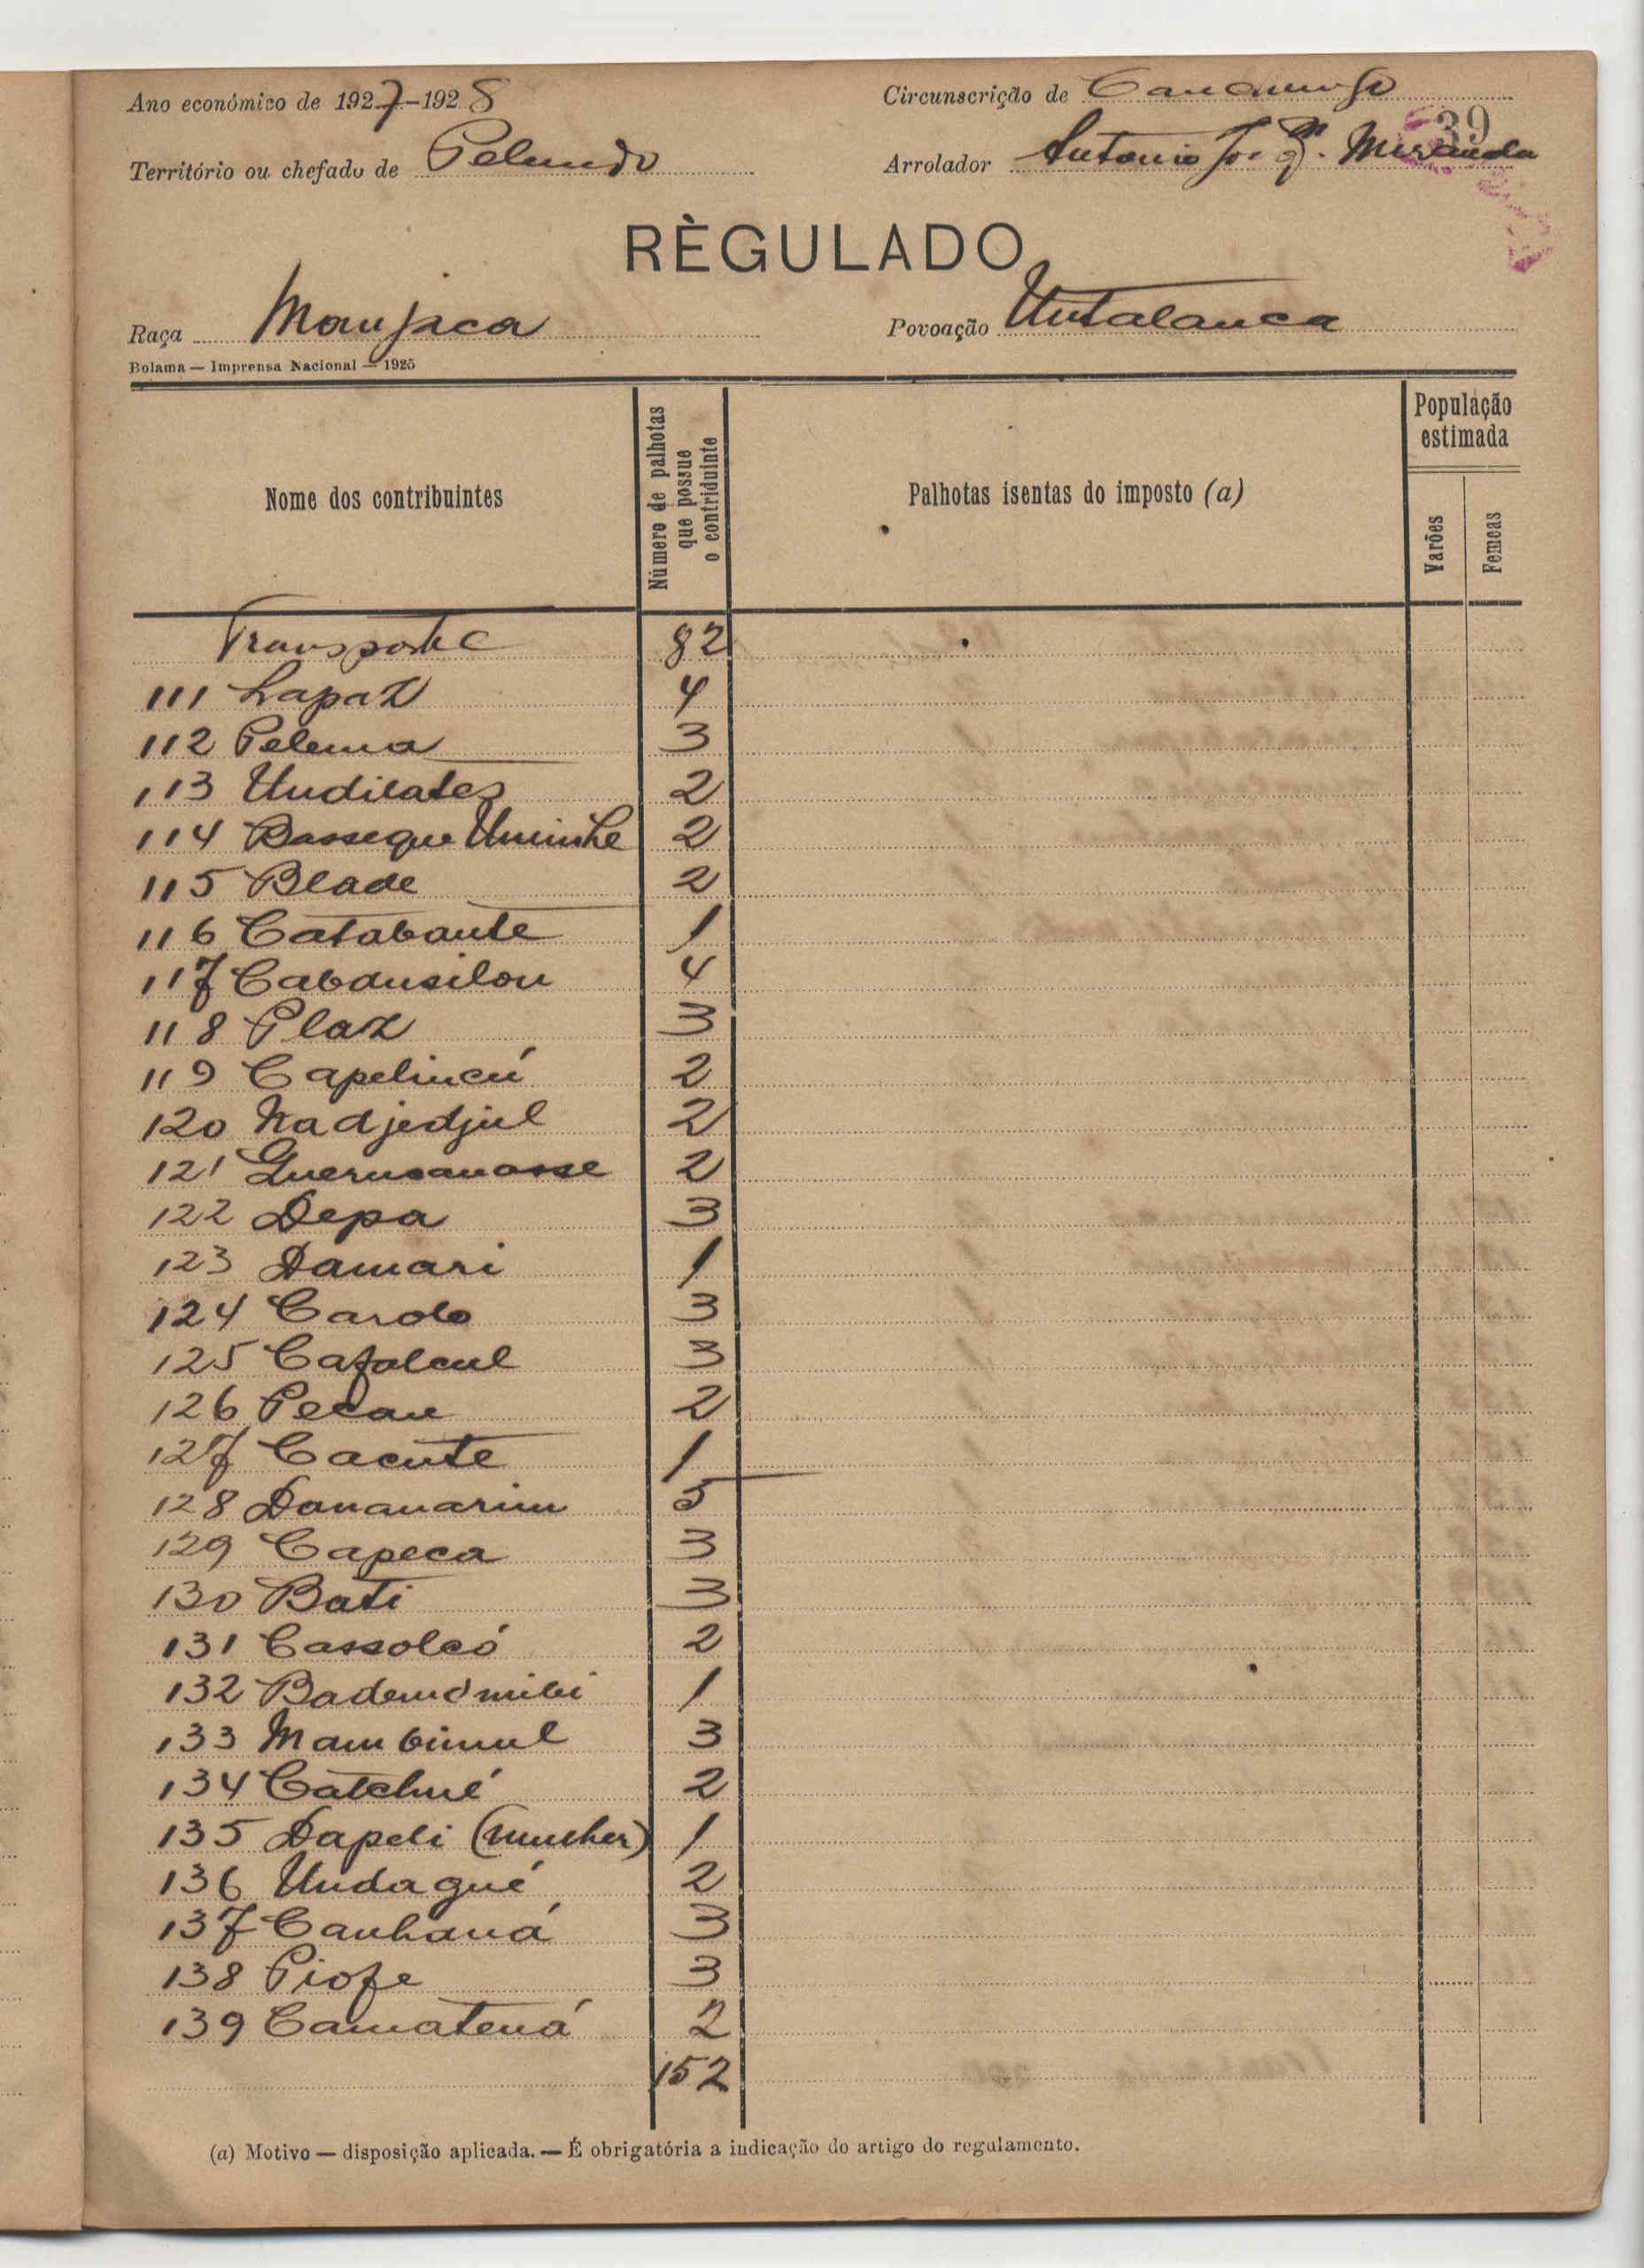 Ano económico de 1927-1928
Circunscrição de
39
Território ou chefado de Pelundo
Arrolador Antonio José P. Miranda
RÈGULADO
Raça Manjaca
Povoação Untalanca
Bolama — Imprensa Nacional — 1925
Nome dos contribuintes
Número de palhotas que possue o contriduinte
Palhotas isentas do imposto (a)
População estimada
Varões
Femeas
Transporte 82
111 Lapaz 4
112 Pelema 3
113 Undilates 2
114 Bassegue Uninhe 2
115 Blade 2
116 Catabante 1
117 Cabansilon 4
118 Plaz 3
119 Capelincú 2
120 Nadjedjul 2
121 2
122 Depa 3
123 Damari 1
124 Cardo 3
125 Cafalcul 3
126 Pecau 2
127 Cacute 1
128 Dananarim 5
129 Capeca 3
130 Bati 3
131 Cassolcó 2
132 1
133 Mambimul 3
134 Catchué 2
135 Dapeli (mulher) 1
136 Undagué 2
137 Canhaná 3
138 Piofe 3
139 Camatená 2
152
(a) Motivo — disposição aplicada. — É obrigatória a indicação do artigo do regulamento.